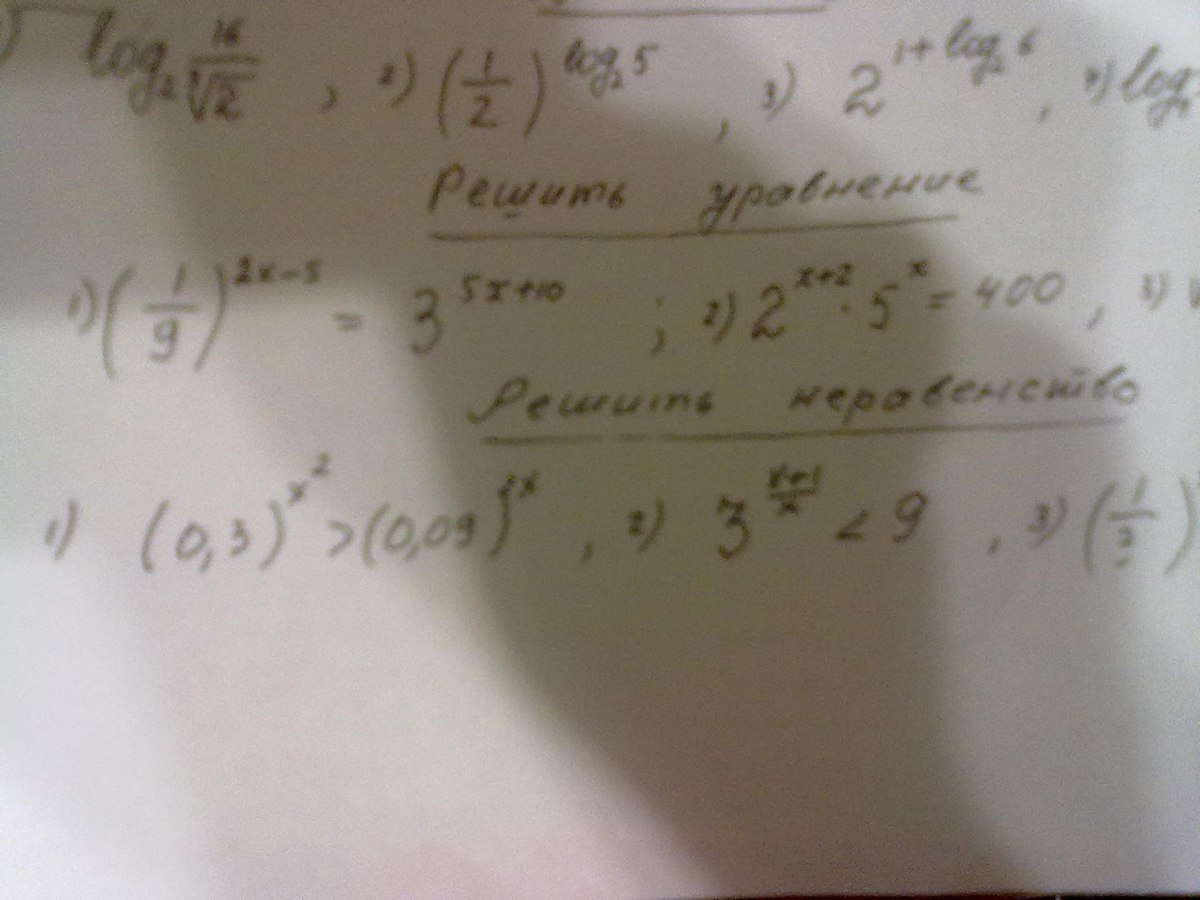 ) log₂ 16/∛2 , 2) (1/2)^(log₂5) , 3) 2^(1+log₂6) , 4) log
Решить уравнение
1) (1/9)^(2x-5) = 3^(5x+10) ; 2) 2^(x+2) · 5^x = 400 , 3)
Решить неравенство
1) (0,3)^(x²) > (0,09)^(2x) , 2) 3^((x+1)/x) < 9 , 3) (1/2)